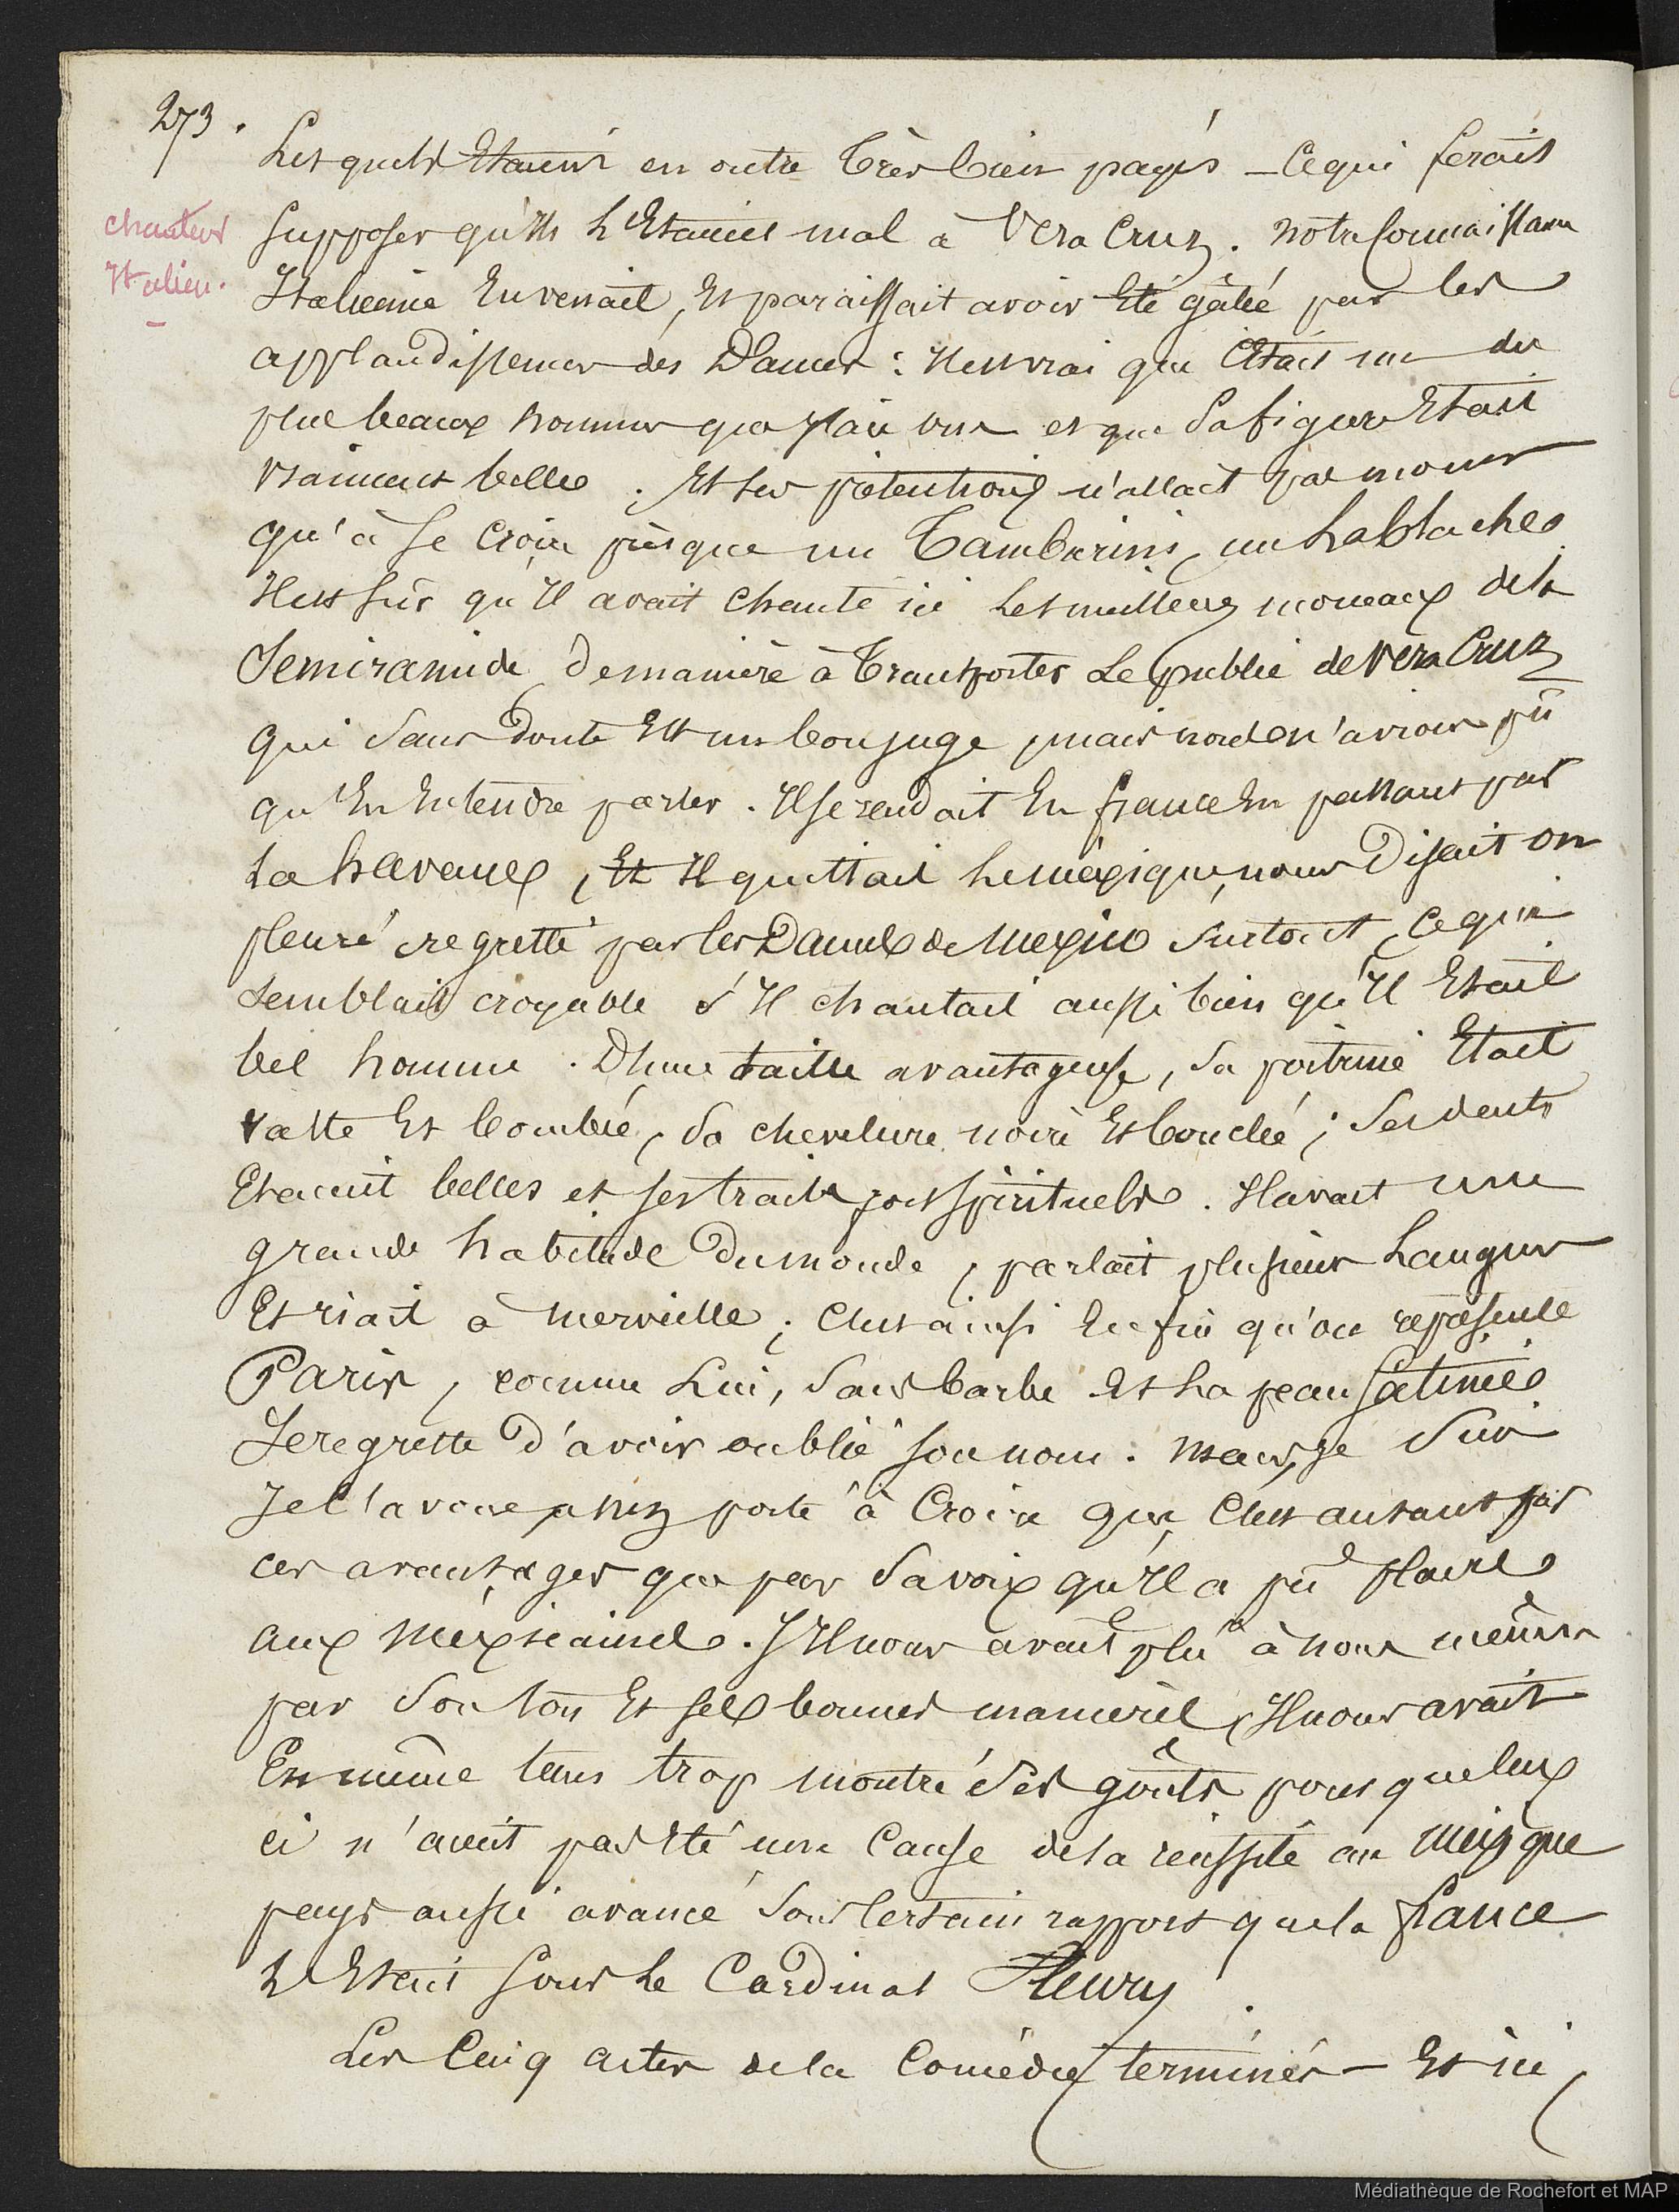 273.
Lesquels Etaient en outre très bien payés – Ce qui ferait
chanteur
Italien.
supposer qu'Ils L'Etaient mal à Vera Cruz. notre connaissance
Italienne En venait, Et paraissait avoir Eté gâté par les
applaudissemens des Dames : Il est vrai que C'était un des
plus beaux hommes que j'aie vus et que Sa figure Etait
vraiment belle. Et ses prétentions n'allait pas moins
qu'à Se Croire presque un Tamburini, un Lablache
Il est sûr qu'Il avait Chanté ici Les meilleurs morceaux de la
Semiramide, de manière à Transporter Le public de Vera Cruz
qui Sans Doute Est un bon juge, mais nous n'avions pû
qu'En Entendre parler. Il se rendait En france En passant par
La havane, Et Il quittait Le mexique, nous Disait on
pleuré regretté par les Dames de Mexico Surtout, Ce qui
Semblait croyable S'Il chantait aussi bien qu'Il Etait
bel homme. D'une taille avantageuse, Sa poitrine Etait
vaste Et bombée, Sa chevelure noire Et bouclée ; Ses dents
Etaient belles et ses traits spirituels. Il avait une
grande habitude Du monde, parlait plusieurs Langues
Et riait à merveille ; C'est ainsi Enfin qu'on représente
Paris, comme Lui, Sans barbe Et La peau Satinée
Je regrette D'avoir oublié son nom. mais, je Suis
Je L'avoue assez porté à Croire que C'est autant par
ces avantages que par Sa voix qu'Il a pû plaire
aux méxicaines. Il nous avait plû à nous mêmes
par Son ton Et ses bonnes manières, Il nous avait
En même tems trop montré Ses goûts pour que ceux
ci n'aient pas Eté une Cause de sa réussite au Mexique
pays aussi avancé Sous Certain rapport que la france
L'Etait Sous Le Cardinal Fleury.
Les Cinq actes de la Comédie terminés – Et ici
Médiathèque de Rochefort et MAP